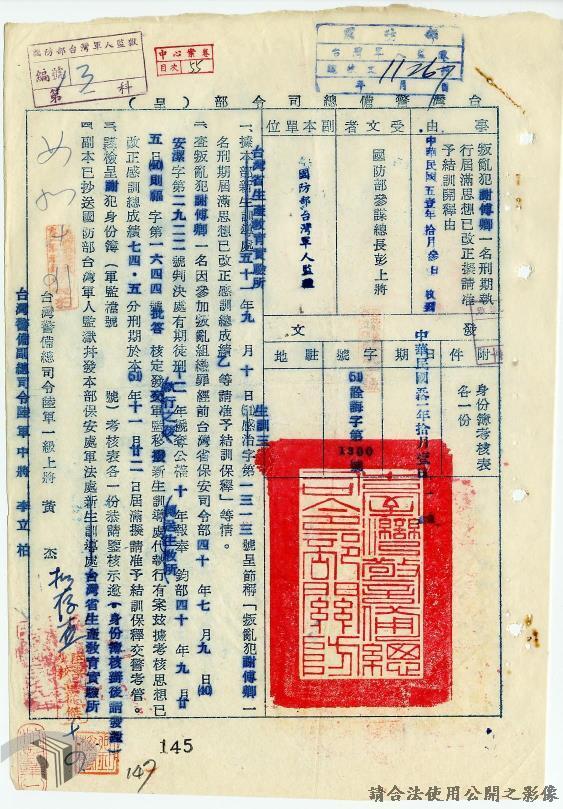 國防部台灣軍人監獄
編號
第 科
中心案卷
目次 55
11267
台灣警備總司令部(呈)
事由
叛亂犯謝傅卿一名刑期執
行屆滿思想已改正擬請准
予結訓開釋由
中華民國五壹年拾月參日 收到
受文者
國防部參謀總長彭上將
副本單位
國防部台灣軍人監獄
附件
身份簿考核表
各一份
發文
日期
中華民國五一年拾月壹日
字號
(51)詮誨字第
1300號
駐地
一、據本部新生訓導處五十一年九月十日(51)感治字第一三一三號呈節稱「叛亂犯謝傅卿一
台灣省生產教育實驗所
生訓
名刑期屆滿思想已改正感訓總成績乙等請准予結訓保釋」等情。
二、查叛亂犯謝傅卿一名因參加叛亂組織罪經前台灣省保安司令部四十年七月九日(40)
安潔字第二九二二號判決處有期徒刑十二年褫奪公權十年報奉 鈞部四十年九月廿
五日(40)則福字第一六四四號批答核定發交軍監移撥新生訓導處代執行有案茲據考核思想已
改正感訓總成績七四·五分刑期於本(51)年十一月廿二日屆滿擬請准予結訓保釋交警考管。
三、謹檢呈謝犯身份簿(軍監檔號 號)考核表各一份恭請鑒核示遵(身份簿核辦後請發還)
四、副本已抄送國防部台灣軍人監獄幷發本部保安處軍法處新生訓導處台灣省生產教育實驗所
台灣警備總司令陸軍一級上將 黃 杰
台灣警備副總司令陸軍中將 李立柏
台灣警備總司令部關防
145
147
請合法使用公開之影像